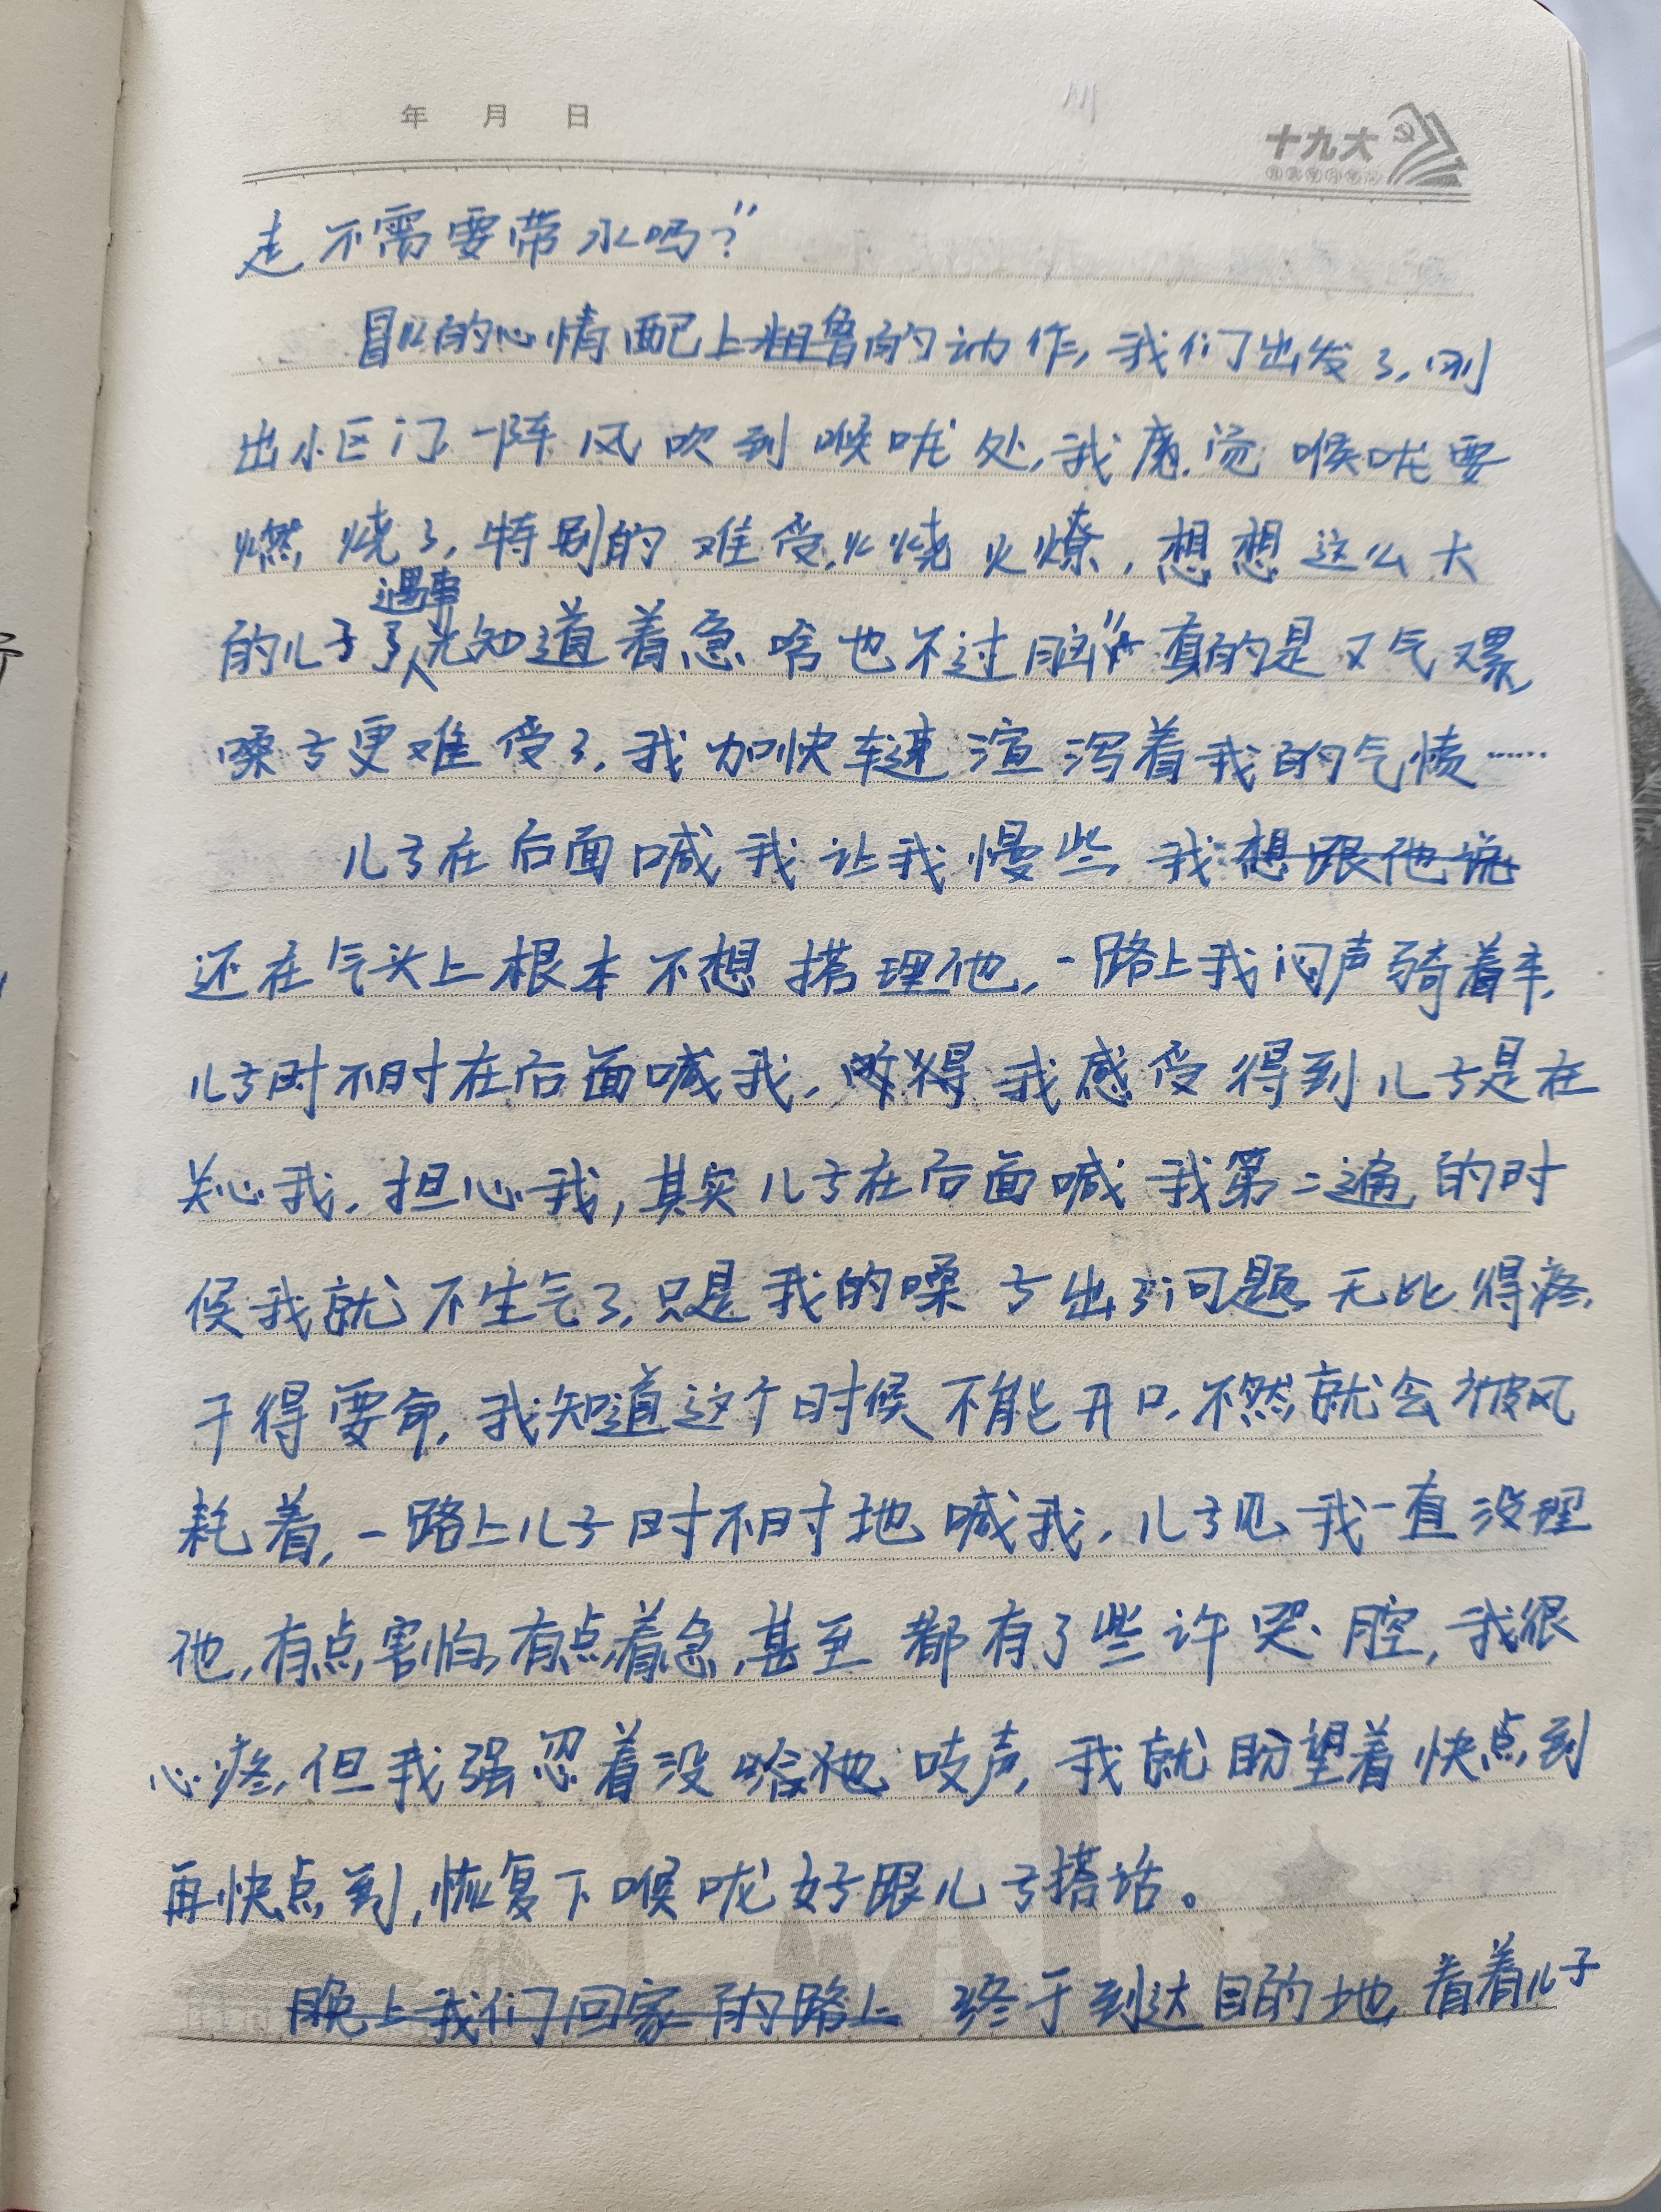 年 月 日
十九大
走不需要带水吗？”
冒火的心情配上粗鲁的动作，我们出发了，刚
出小区门一阵风吹到喉咙处，我感觉喉咙要
燃烧了，特别的难受，火烧火燎，想想这么大
遇事
的儿子了只知道着急啥也不过脑“真的是又气又累，
嗓子更难受了，我加快车速渲泻着我的气愤……
儿子在后面喊我让我慢些，我想跟他说
还在气头上根本不想搭理他，一路上我闷声骑着车，
儿子时不时在后面喊我，难得我感受得到儿子是在
关心我，担心我，其实儿子在后面喊我第二遍的时
候我就不生气了，只是我的嗓子出了问题，无比得疼，
干得要命，我知道这个时候不能开口，不然就会被风
耗着，一路上儿子时不时地喊我，儿子见我一直没理
他，有点害怕，有点着急，甚至都有了些许哭腔，我很
心疼，但我强忍着没给他吱声，我就盼望着快点到
再快点到，恢复下喉咙好跟儿子搭话。
晚上我们回家的路上 终于到达目的地，看着儿子